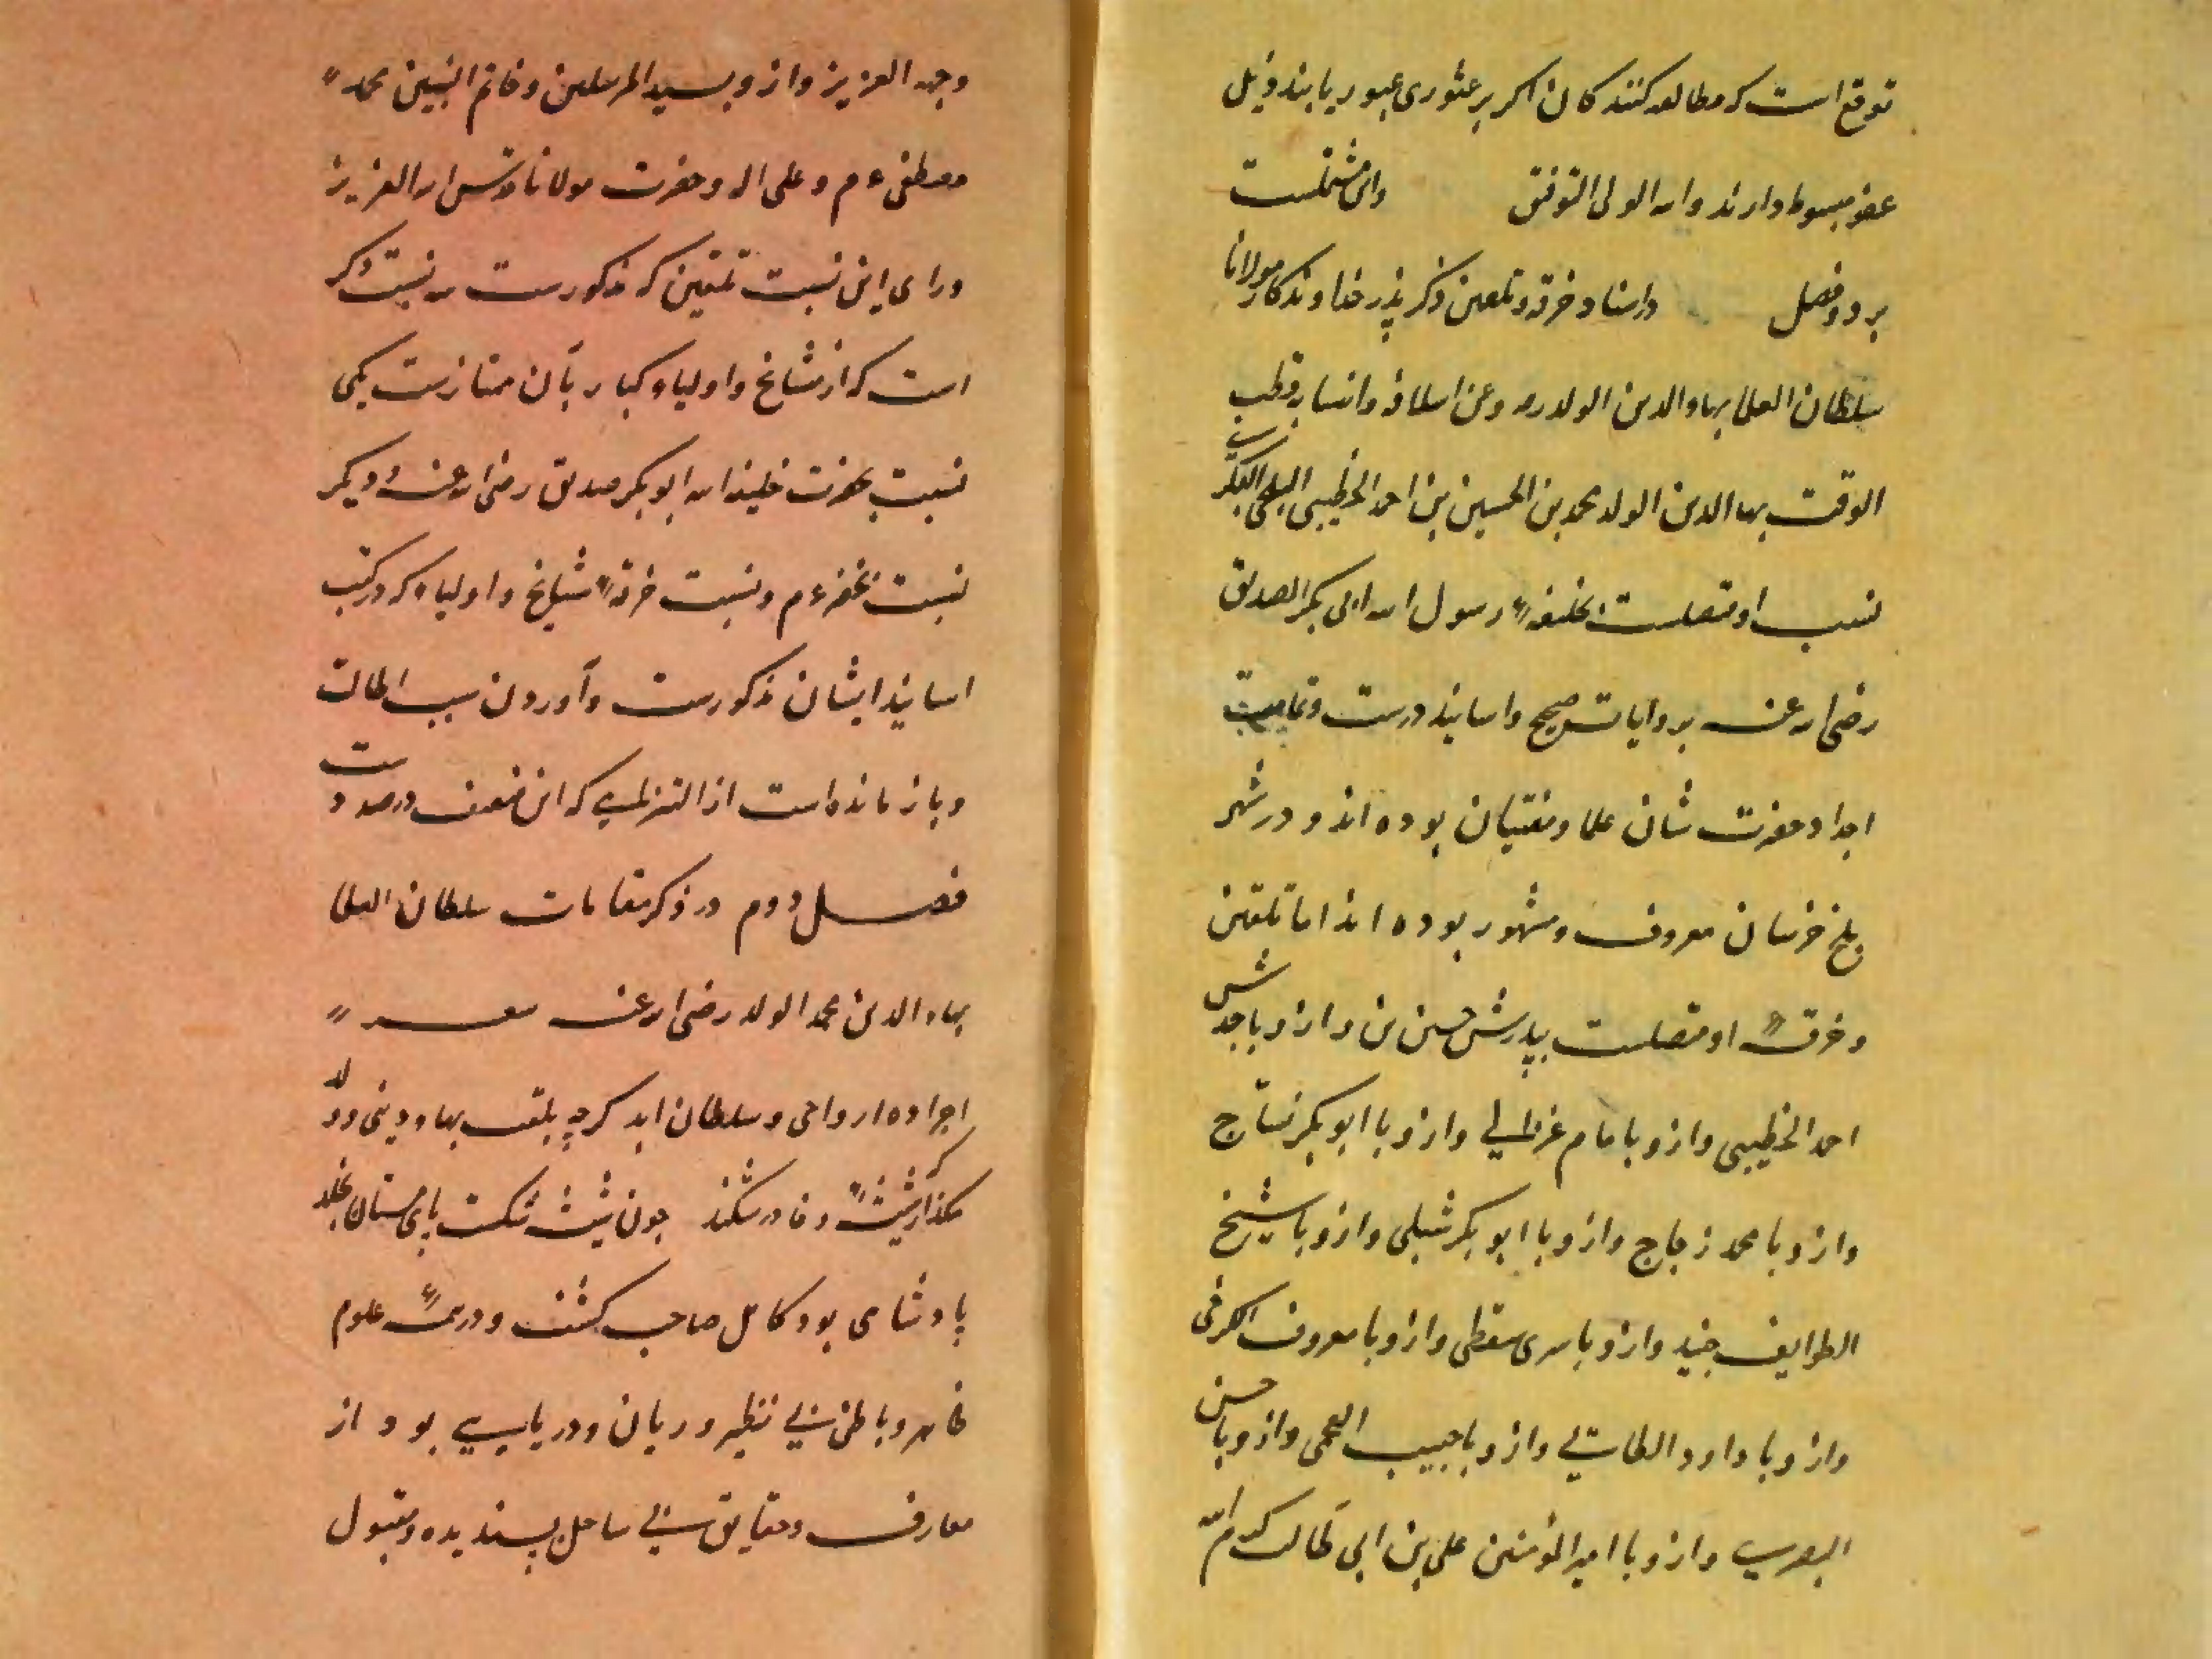 توقع است که مطالعه کنندکان اکر بر عثوری عبور یابند ذیل
عفو مبسوط دارند والله الولی التوفیق واین مشتملست
بر دو فصل در اسناد خرقه وتلقین ذکر پدر خداوندکار مولانا
سلطان العلما بهاء الدین الولد رضه وعن اسلافه وانسابه قطب
الوقت بهاء الدین الولد محمد بن الحسین بن احمد الخطیبی البلخی البکری
نسب او متصلست بخلیفهٔ رسول الله ابی بکر الصدیق
رضی الله عنه بروایات صحیح واسانید درست وتمامیت
اجداد حضرت شان علما ومفتیان بوده اند ودر شهر
بلخ خرسان معروف ومشهور بوده اند اما تلقین
وخرقهٔ او متصلست بپدرش حسین بن وازو باجدش
احمد الخطیبی وازو بامام غزالی وازو با ابو بکر نساج
وازو با محمد زجاج وازو با ابو بکر شبلی وازو با شیخ
الطوایف جنید وازو با سری سقطی وازو با معروف الکرخی
وازو با داود الطائی وازو با حبیب العجمی وازو با حسن
البصری وازو با امیر المؤمنین علی بن ابی طالب کرم الله
وجهه العزیز وازو بسید المرسلین وخاتم النبیین محمد
مصطفی ءم وعلی اله وحضرت مولانا قدس الله العزیز
ورای این نسبت تلقین که مذکورست سه نسبت دکر
است که از مشایخ واولیا وکبار بآن ممتازست یکی
نسبت بحضرت خلیفه الله ابو بکر صدیق رضی الله عنه ودیکر
نسبت بخضر ءم ونسبت خرقهٔ مشایخ واولیاء که در کتب
اسانید ایشان مذکورست وآوردن سبب اطالت
وبازمانده است از التزامی که این ضعیف در صدد
فصل دوم در ذکر مقامات سلطان العلما
بهاء الدین محمد الولد رضی الله عنه
اجراده ارواحی وسلطان ابد کرچه بلقب بهاء دینی وولد
بکذار که شیشهٔ وفا در شکند چون شیشه شکست پای مستان بخلد
پادشاهی بود کامل صاحب کشف ودر همهٔ علوم
ظاهر وباطن بی نظیر وربان ودریایی بود از
معارف وحقایق بی ساحل پسندیده ومقبول